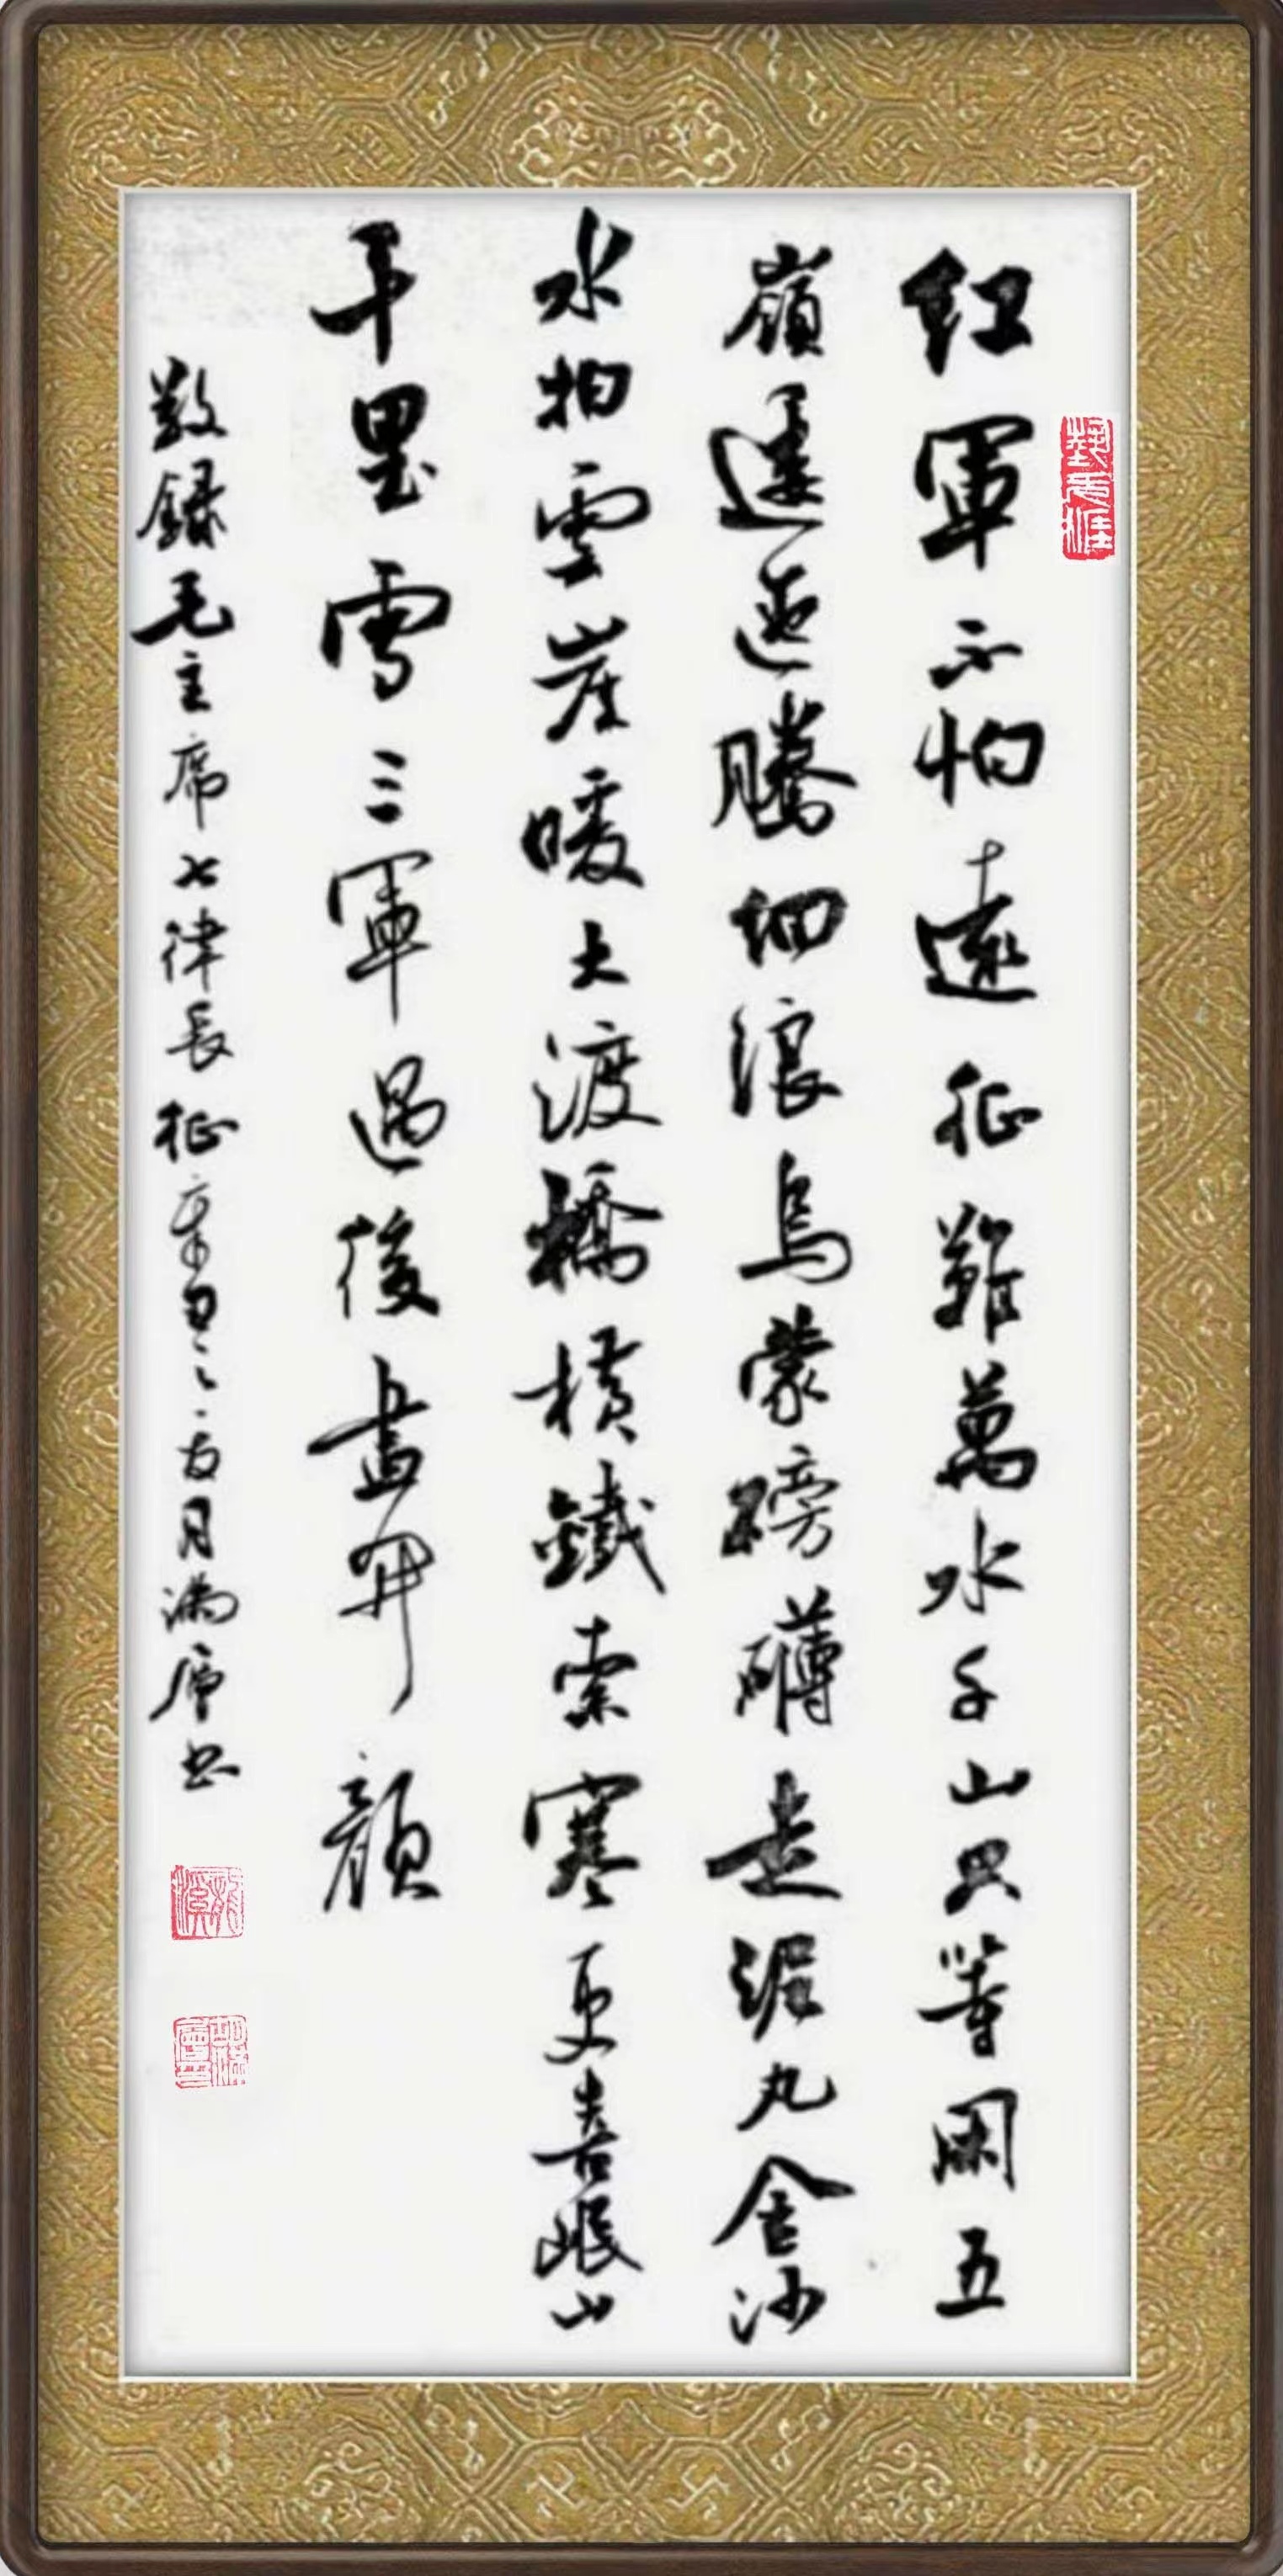 紅軍不怕遠征難萬水千山只等閑五
嶺逶迤騰細浪烏蒙磅礡走泥丸金沙
水拍雲崖暖大渡橋橫鐵索寒更喜岷山
千里雪三軍過後盡開顏
敬錄毛主席七律長征辛丑之月滿廬书
藝無涯